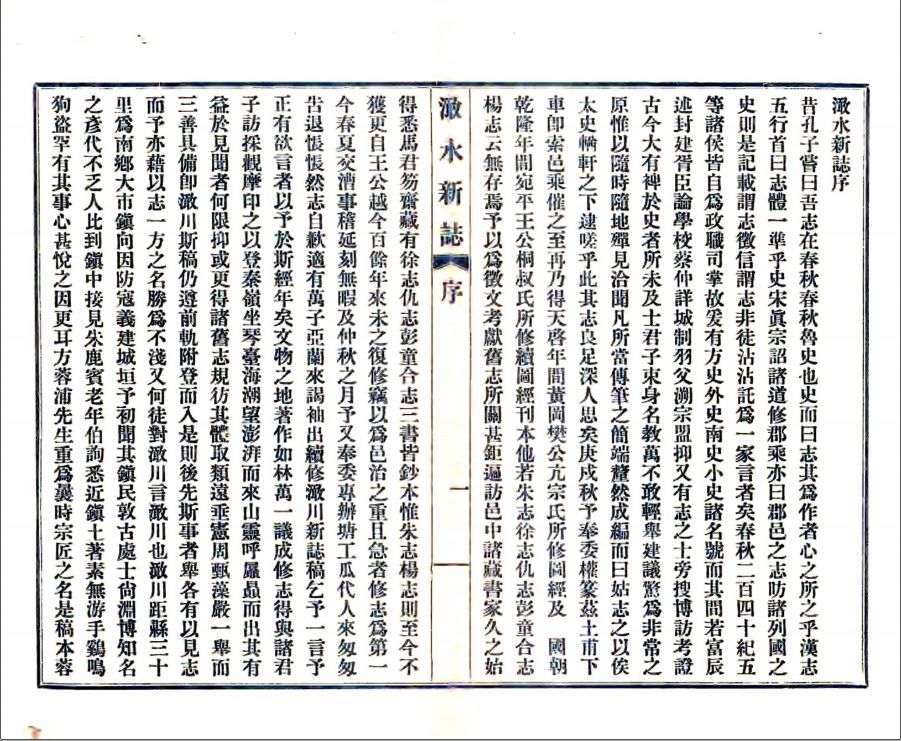 澉水新誌序
昔孔子嘗曰吾志在春秋春秋魯史也史而曰志其爲作者心之所之乎漢志
五行首曰志體一準乎史宋眞宗詔諸道修郡乘亦曰郡邑之志昉諸列國之
史則是記載謂志徵信謂志非徒沾沾託爲一家言者矣春秋二百四十紀五
等諸侯皆自爲政職司掌故爰有方史外史南史小史諸名號而其間若富辰
述封建胥臣論學校蔡仲詳城制羽父溯宗盟抑又有志之士旁搜博訪考證
古今大有裨於史者所未及士君子束身名教萬不敢輕舉建議驚爲非常之
原惟以隨時隨地殫見洽聞凡所當傳筆之簡端釐然成編而曰姑志之以俟
太史輶軒之下逮嗟乎此其志良足深人思矣庚戌秋予奉委權篆茲土甫下
車卽索邑乘催之至再乃得天啓年間黃岡樊公亢宗氏所修圖經及 國朝
乾隆年間宛平王公桐叔氏所修續圖經刊本他若朱志徐志仇志彭童合志
楊志云無存焉予以爲徵文考獻舊志所關甚鉅遍訪邑中諸藏書家久之始
澉水新誌 序 一
得悉馬君笏齋藏有徐志仇志彭童合志三書皆鈔本惟朱志楊志則至今不
獲更自王公越今百餘年來未之復修竊以爲邑治之重且急者修志爲第一
今春夏交漕事稽延刻無暇及仲秋之月予又奉委專辦塘工瓜代人來匆匆
告退悵悵然志自歉適有萬子亞蘭來謁袖出續修澉川新誌稿乞予一言予
正有欲言者以予於斯經年矣文物之地著作如林萬一議成修志得與諸君
子訪採觀摩印之以登秦嶺坐琴臺海潮望澎湃而來山靈呼屭贔而出其有
益於見聞者何限抑或更得諸舊志規彷其體取類遠垂憲周甄藻嚴一舉而
三善具備卽澉川斯稿仍遵前軌附登而入是則後先斯事者舉各有以見志
而予亦藉以志一方之名勝爲不淺又何徒對澉川言澉川也澉川距縣三十
里爲南鄉大市鎭向因防寇義建城垣予初聞其鎭民敦古處士尙淵博知名
之彥代不乏人比到鎭中接見朱鹿賓老年伯詢悉近鎭土著素無游手鷄鳴
狗盜罕有其事心甚悅之因更耳方蓉浦先生重爲曩時宗匠之名是稿本蓉